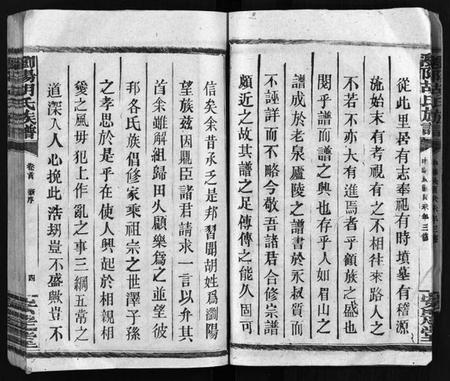 從此里居有志奉祀有時墳墓有稽源
流始末有考視有之不相往來路人之
不若不亦大有逕焉者乎顧族之盛也
関乎譜而譜之興也存乎人如眉山之
譜成於老泉廬陵之譜書於永叔質而
不誣詳而不略今敬吾諸君合修宗譜
願近之故其譜之足傳傳之能久固可
信矣余昔承乏是邦習聞胡姓爲瀏陽
望族茲因颺臣諸君請求一言以弁其
首余雖解組歸田久顧樂爲之並望彼
邦各氏族倡修家乘祖宗之世澤子孫
之孝思於是乎在使人興起於相親相
愛之風毋犯上作亂之事三綱五常之
道深入人心挽此浩劫豈不盛歟豈不
瀏陽胡氏族譜
卷首
序
四